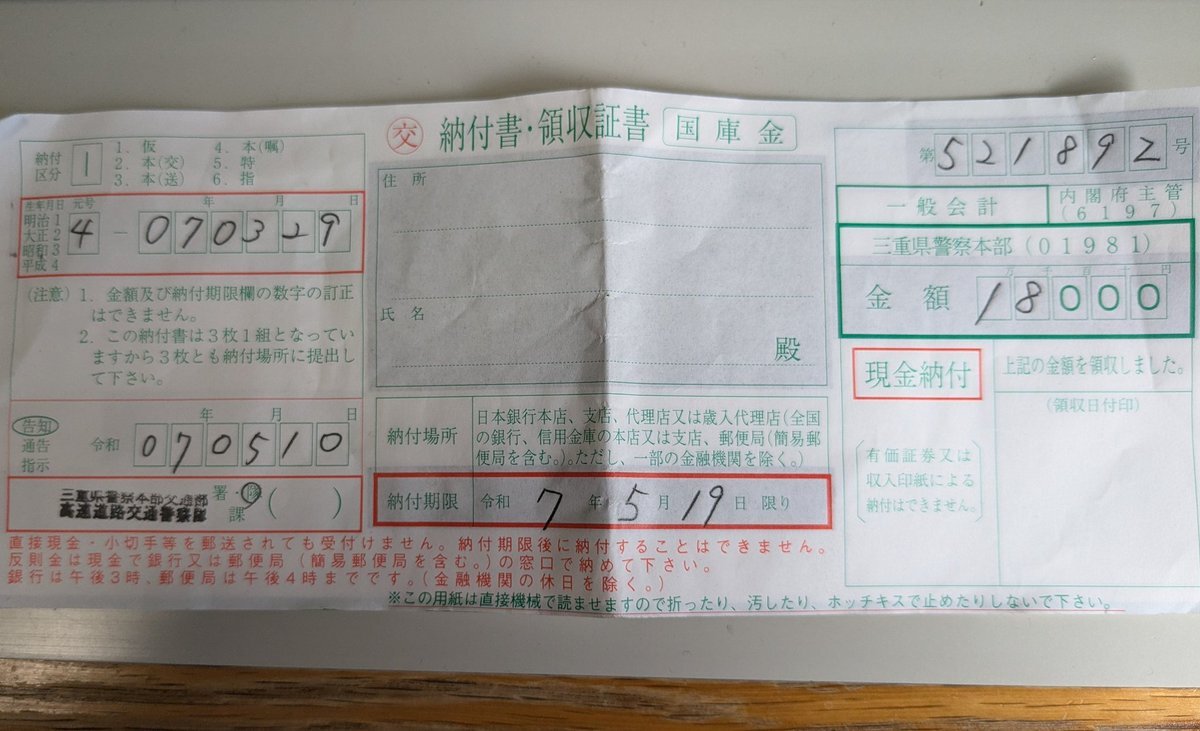 ㊋交 納付書・領収証書 国庫金
納付区分 1
1. 仮 4. 本(嘱)
2. 本(交) 5. 特
3. 本(送) 6. 指
第521892号
生年月日 元号 年 月 日
明治1
大正2
昭和3
平成4
4 - 070329
住所
氏名
殿
一般会計 内閣府主管(6197)
三重県警察本部(01981)
万 千 百 十 円
金額 18000
(注意) 1. 金額及び納付期限欄の数字の訂正
はできません。
2. この納付書は3枚1組となってい
ますから3枚とも納付場所に提出し
て下さい。
現金納付
上記の金額を領収しました。
(領収日付印)
有価証券又は
収入印紙による
納付はできません。
年 月 日
告知
通告
指示
令和 070510
三重県警察本部交通部
高速道路交通警察隊
署・隊
課 ( )
納付場所
日本銀行本店、支店、代理店又は歳入代理店(全国
の銀行、信用金庫の本店又は支店、郵便局(簡易郵
便局を含む。)。ただし、一部の金融機関を除く。)
納付期限 令和 7 年 5 月 19 日 限り
直接現金・小切手等を郵送されても受付けません。納付期限後に納付することはできません。
反則金は現金で銀行又は郵便局(簡易郵便局を含む。)の窓口で納めて下さい。
銀行は午後3時、郵便局は午後4時までです。(金融機関の休日を除く。)
※この用紙は直接機械で読ませますので折ったり、汚したり、ホッチキスで止めたりしないで下さい。